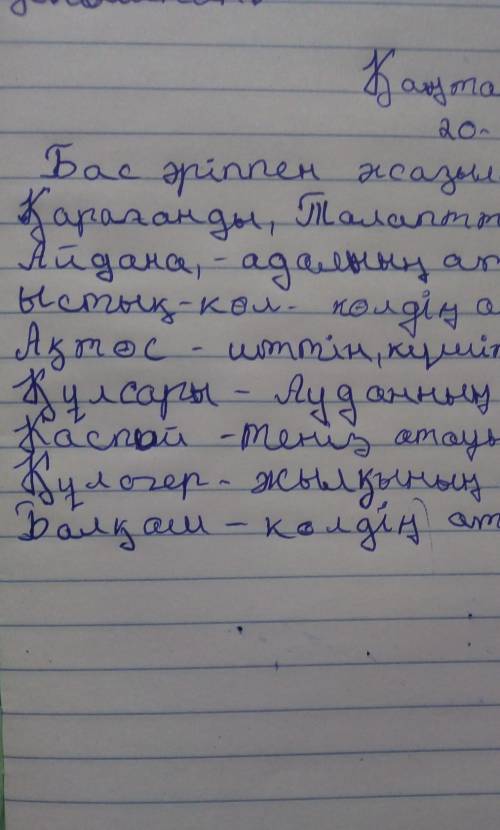 Қаңта
20-
Бас әріппен жазыл
Қарағанды, Талаптт
Айдана, - адамның ат
ыстық-көл - көлдің а
Ақтөс - иттің, күшіг
Құлсары - Ауданның
Каспий - теңіз атауы
Құлагер - жылқының
Балқаш - көлдің ат